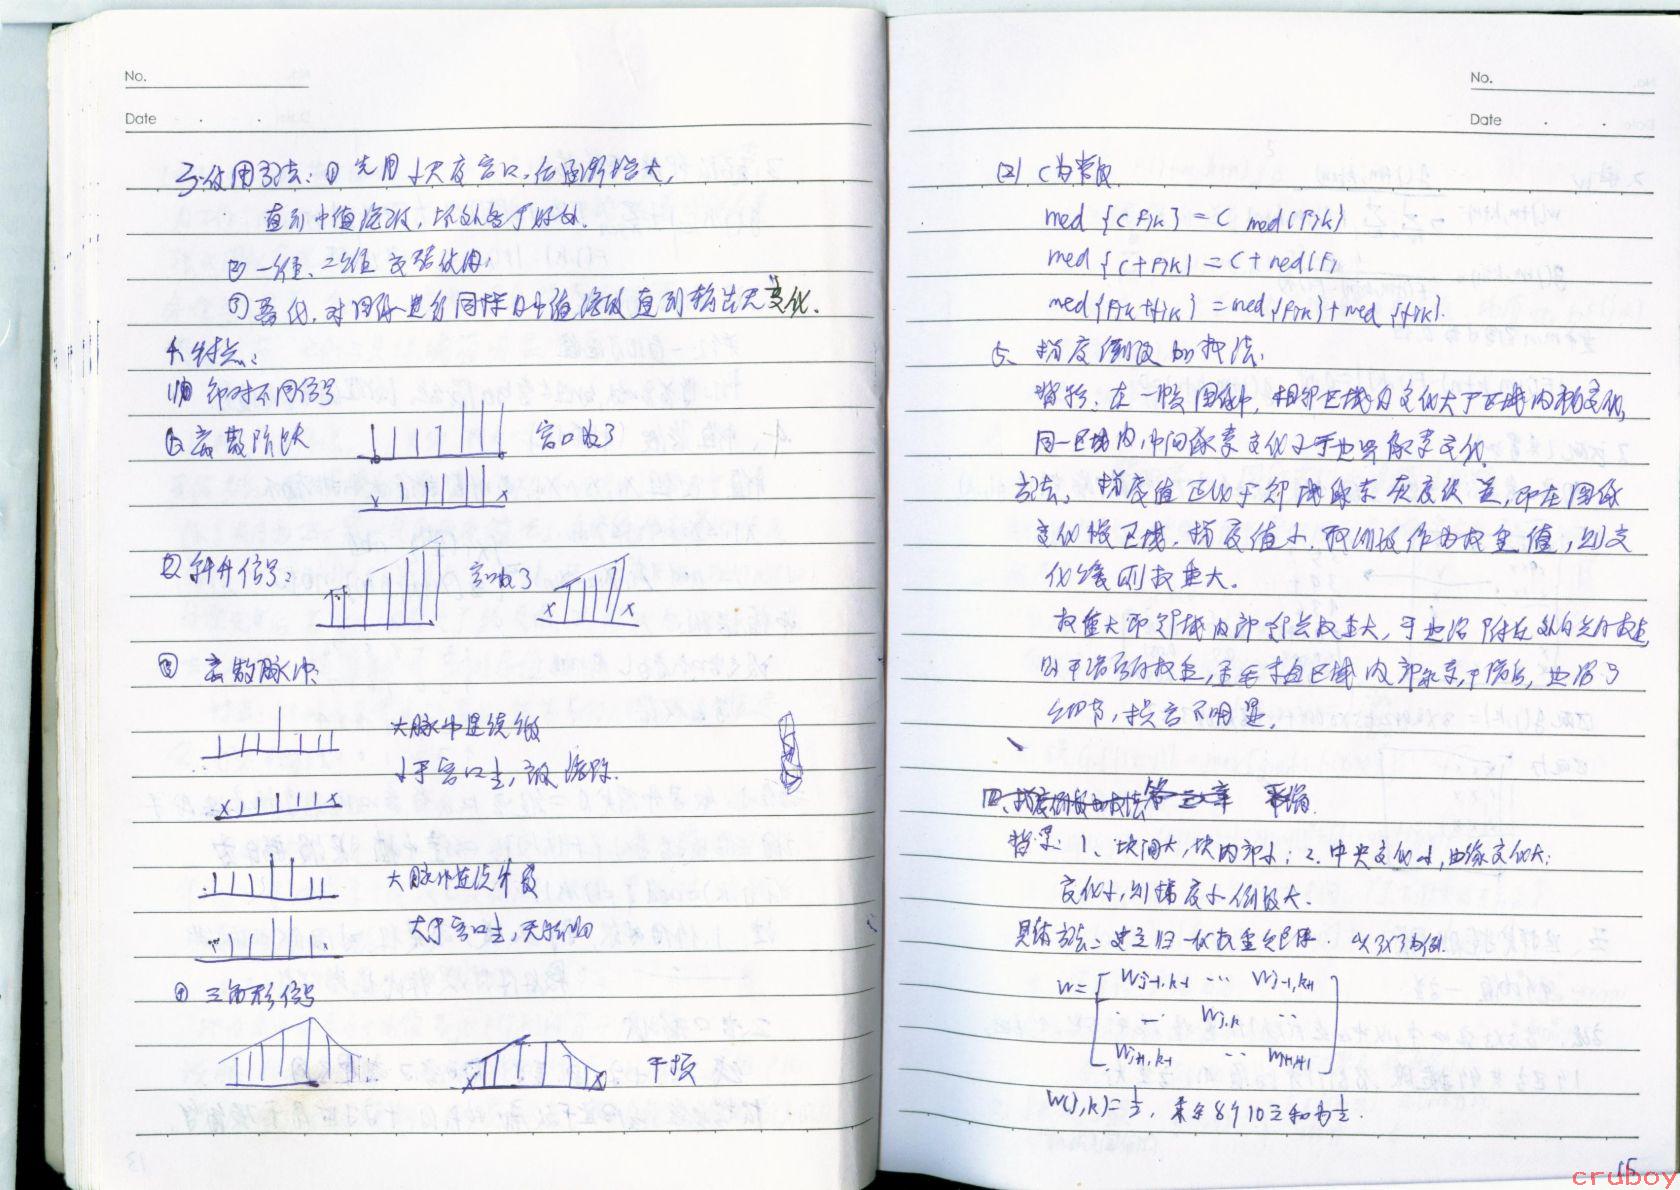 No.
Date
三、使用方法：① 先用小尺度窗口，后逐渐增大，
直到中值滤波，坏处多于好处.
② 一维、二维交替使用.
③ 迭代，对图像进行同样的中值滤波直到输出无变化.
4. 特点：
(1) 针对不同信号
① 离散阶跃 窗口为3
② 斜升信号： 窗口为3
③ 离散脉冲：
大脉冲连续数
小于窗口一半，被滤除.
大脉冲连续
大于窗口一半，无影响
④ 三角形信号
干扰
No.
Date
(2) C为常数
med {C Fjk} = C med{Fjk}
med {C+Fjk} = C+med{F
med{Fjk+fjk} ≠ med{Fjk}+med{fjk}.
5. 梯度倒数加权法.
背景：在一幅图像中，相邻区域的变化大于区域内部变化,
同一区域内，中间像素变化小于边界像素变化.
方法：梯度值正比于邻域像素灰度级差，即在图像
变化慢区域，梯度值小，取倒数作为权重值，则变
化缓则权重大.
权重大即邻域内部邻点权重大，于边沿附近
区域内部像素，平滑后，边沿与
细节，损害不明显.
第三章
背景：1、块间大，块内部小；2. 中央变化小，边缘变化大；
变化小，则梯度小倒数大.
具体方法：建立归一化权重矩阵. 以3×3为例.
W= Wj-1,k-1 ··· Wj-1,k+1
·· Wj,k ··
Wj+1,k-1 ·· Wj+1,k+1
W(j,k)=½, 其余8个 之和为½.
15
cruboy